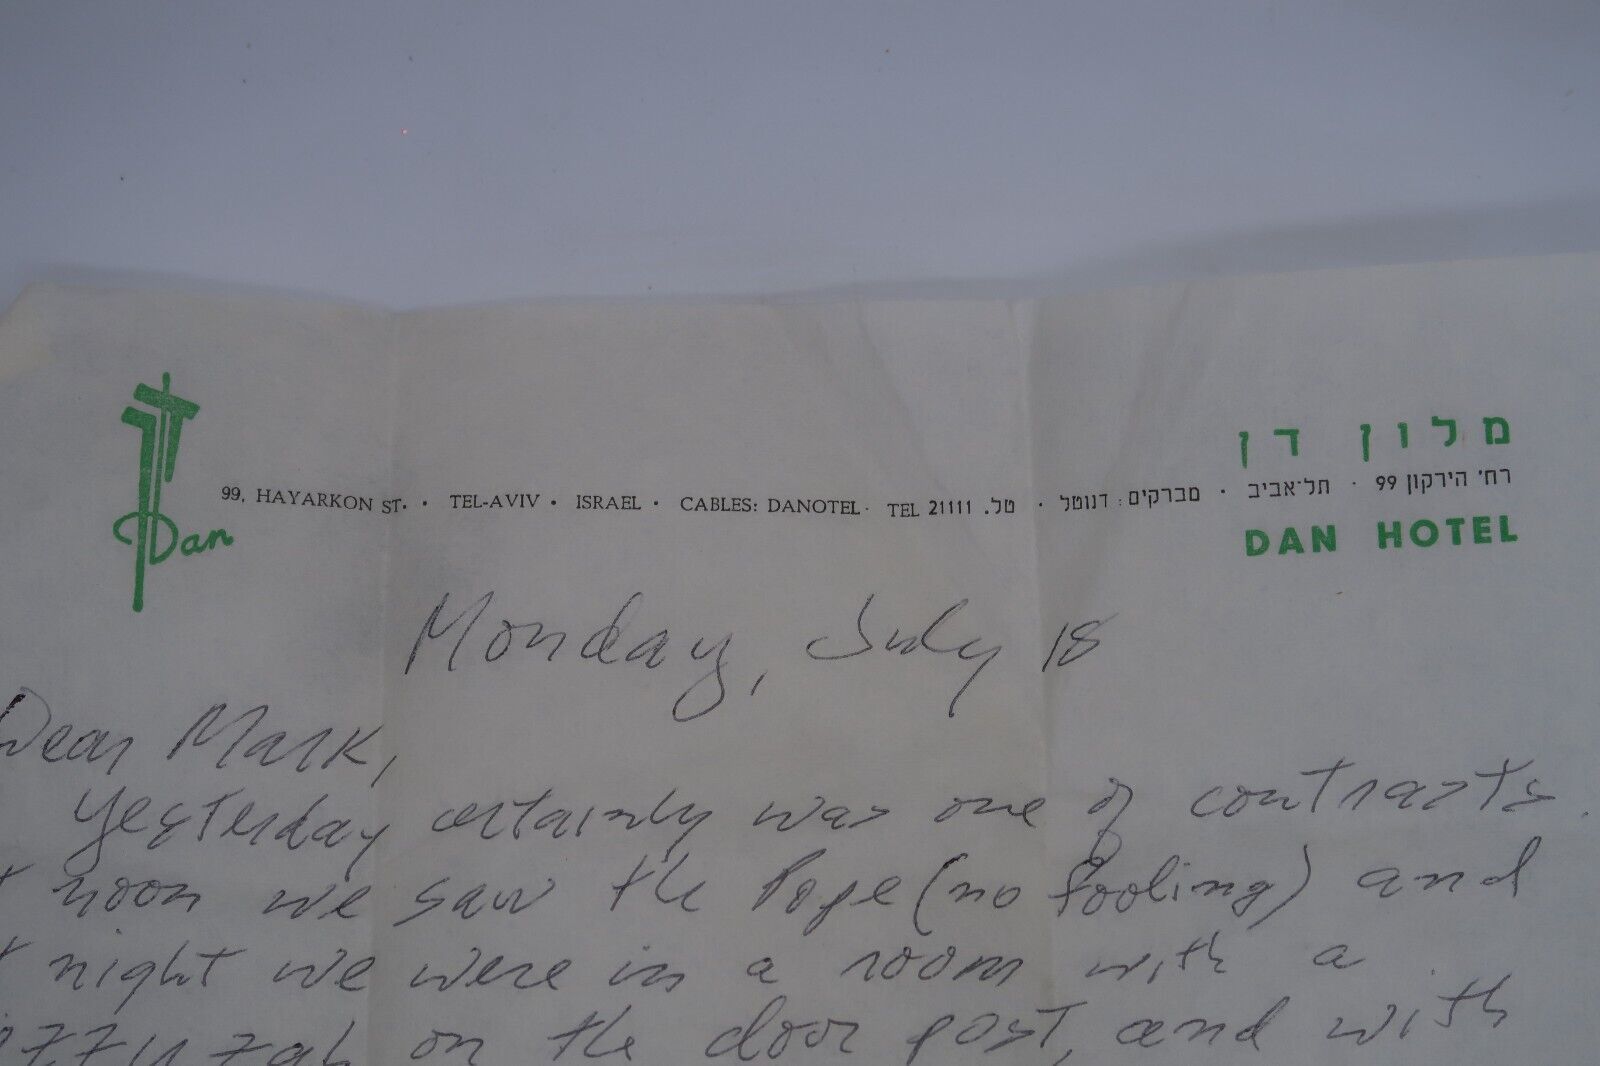 מלון דן
99, HAYARKON ST. · TEL-AVIV · ISRAEL · CABLES: DANOTEL · TEL 21111 טל. · מברקים: דנוטל · רח' הירקון 99 · תל־אביב
Dan
DAN HOTEL
Monday, July 18
Dear Mark,
Yesterday certainly was one of contrasts.
noon we saw the Pope (no fooling) and
night we were in a room with a
on the door post, and with